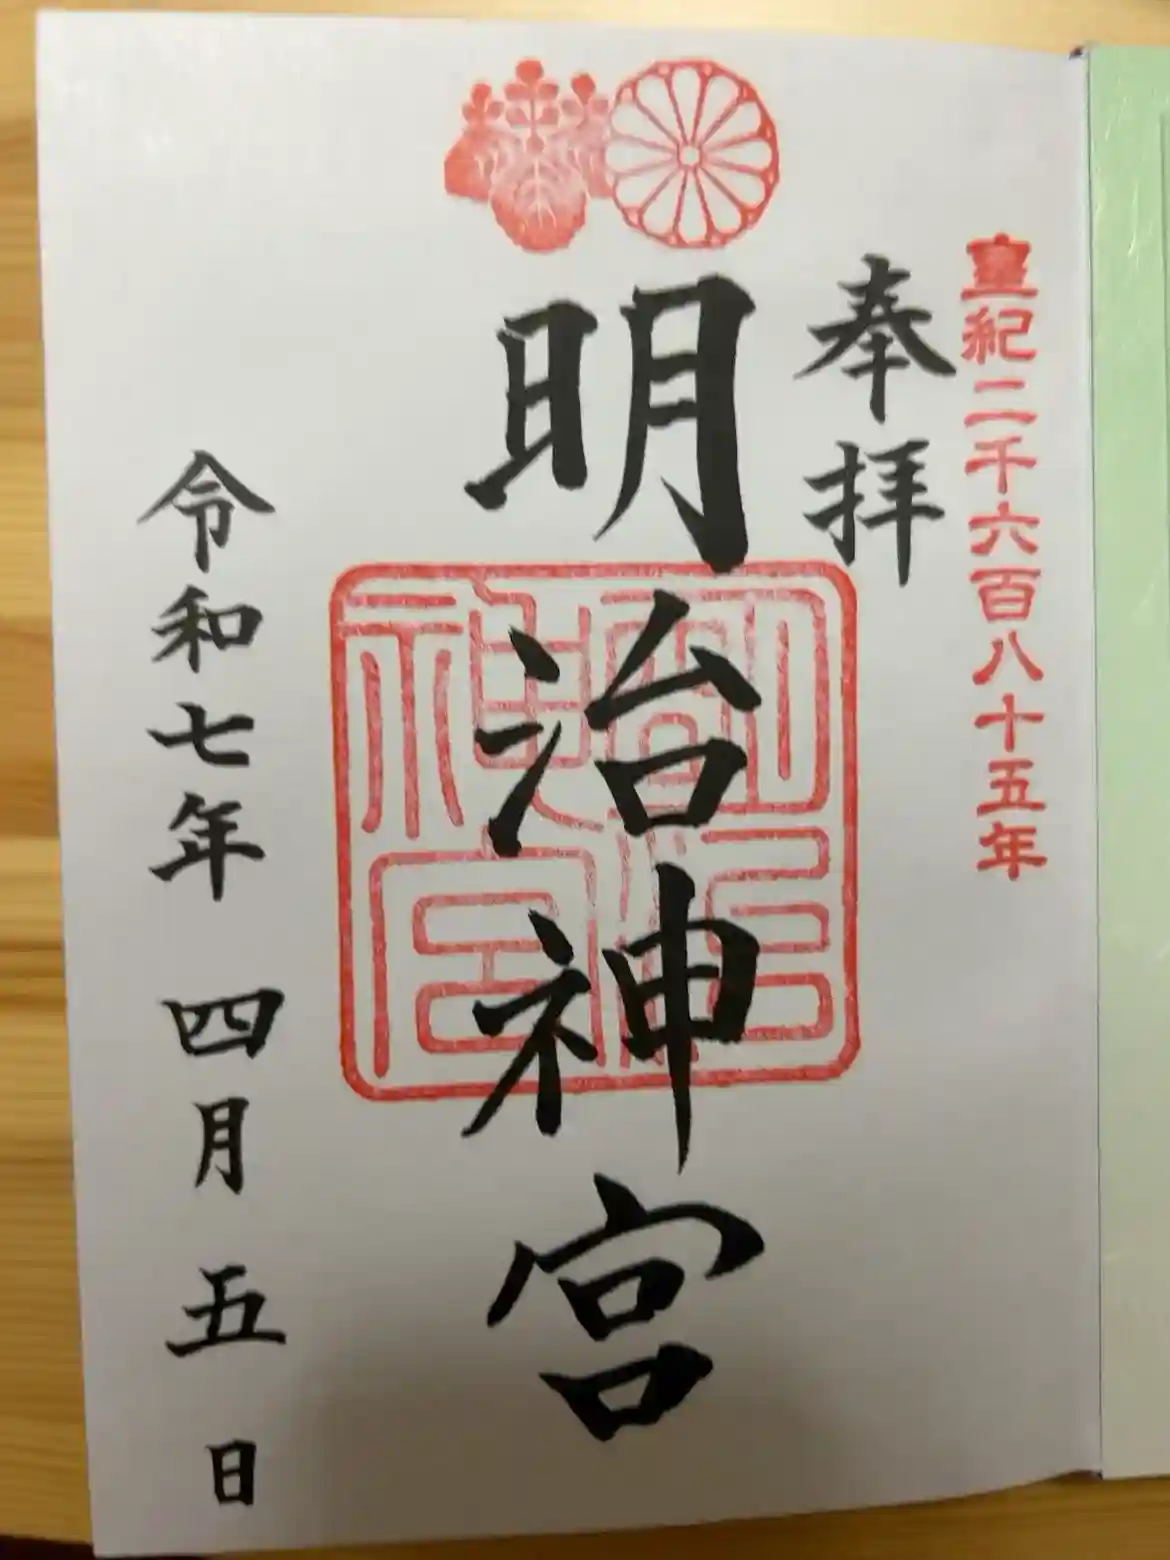 皇紀二千六百八十五年
奉拝
明治神宮
明治神宮
令和七年 四月 五日